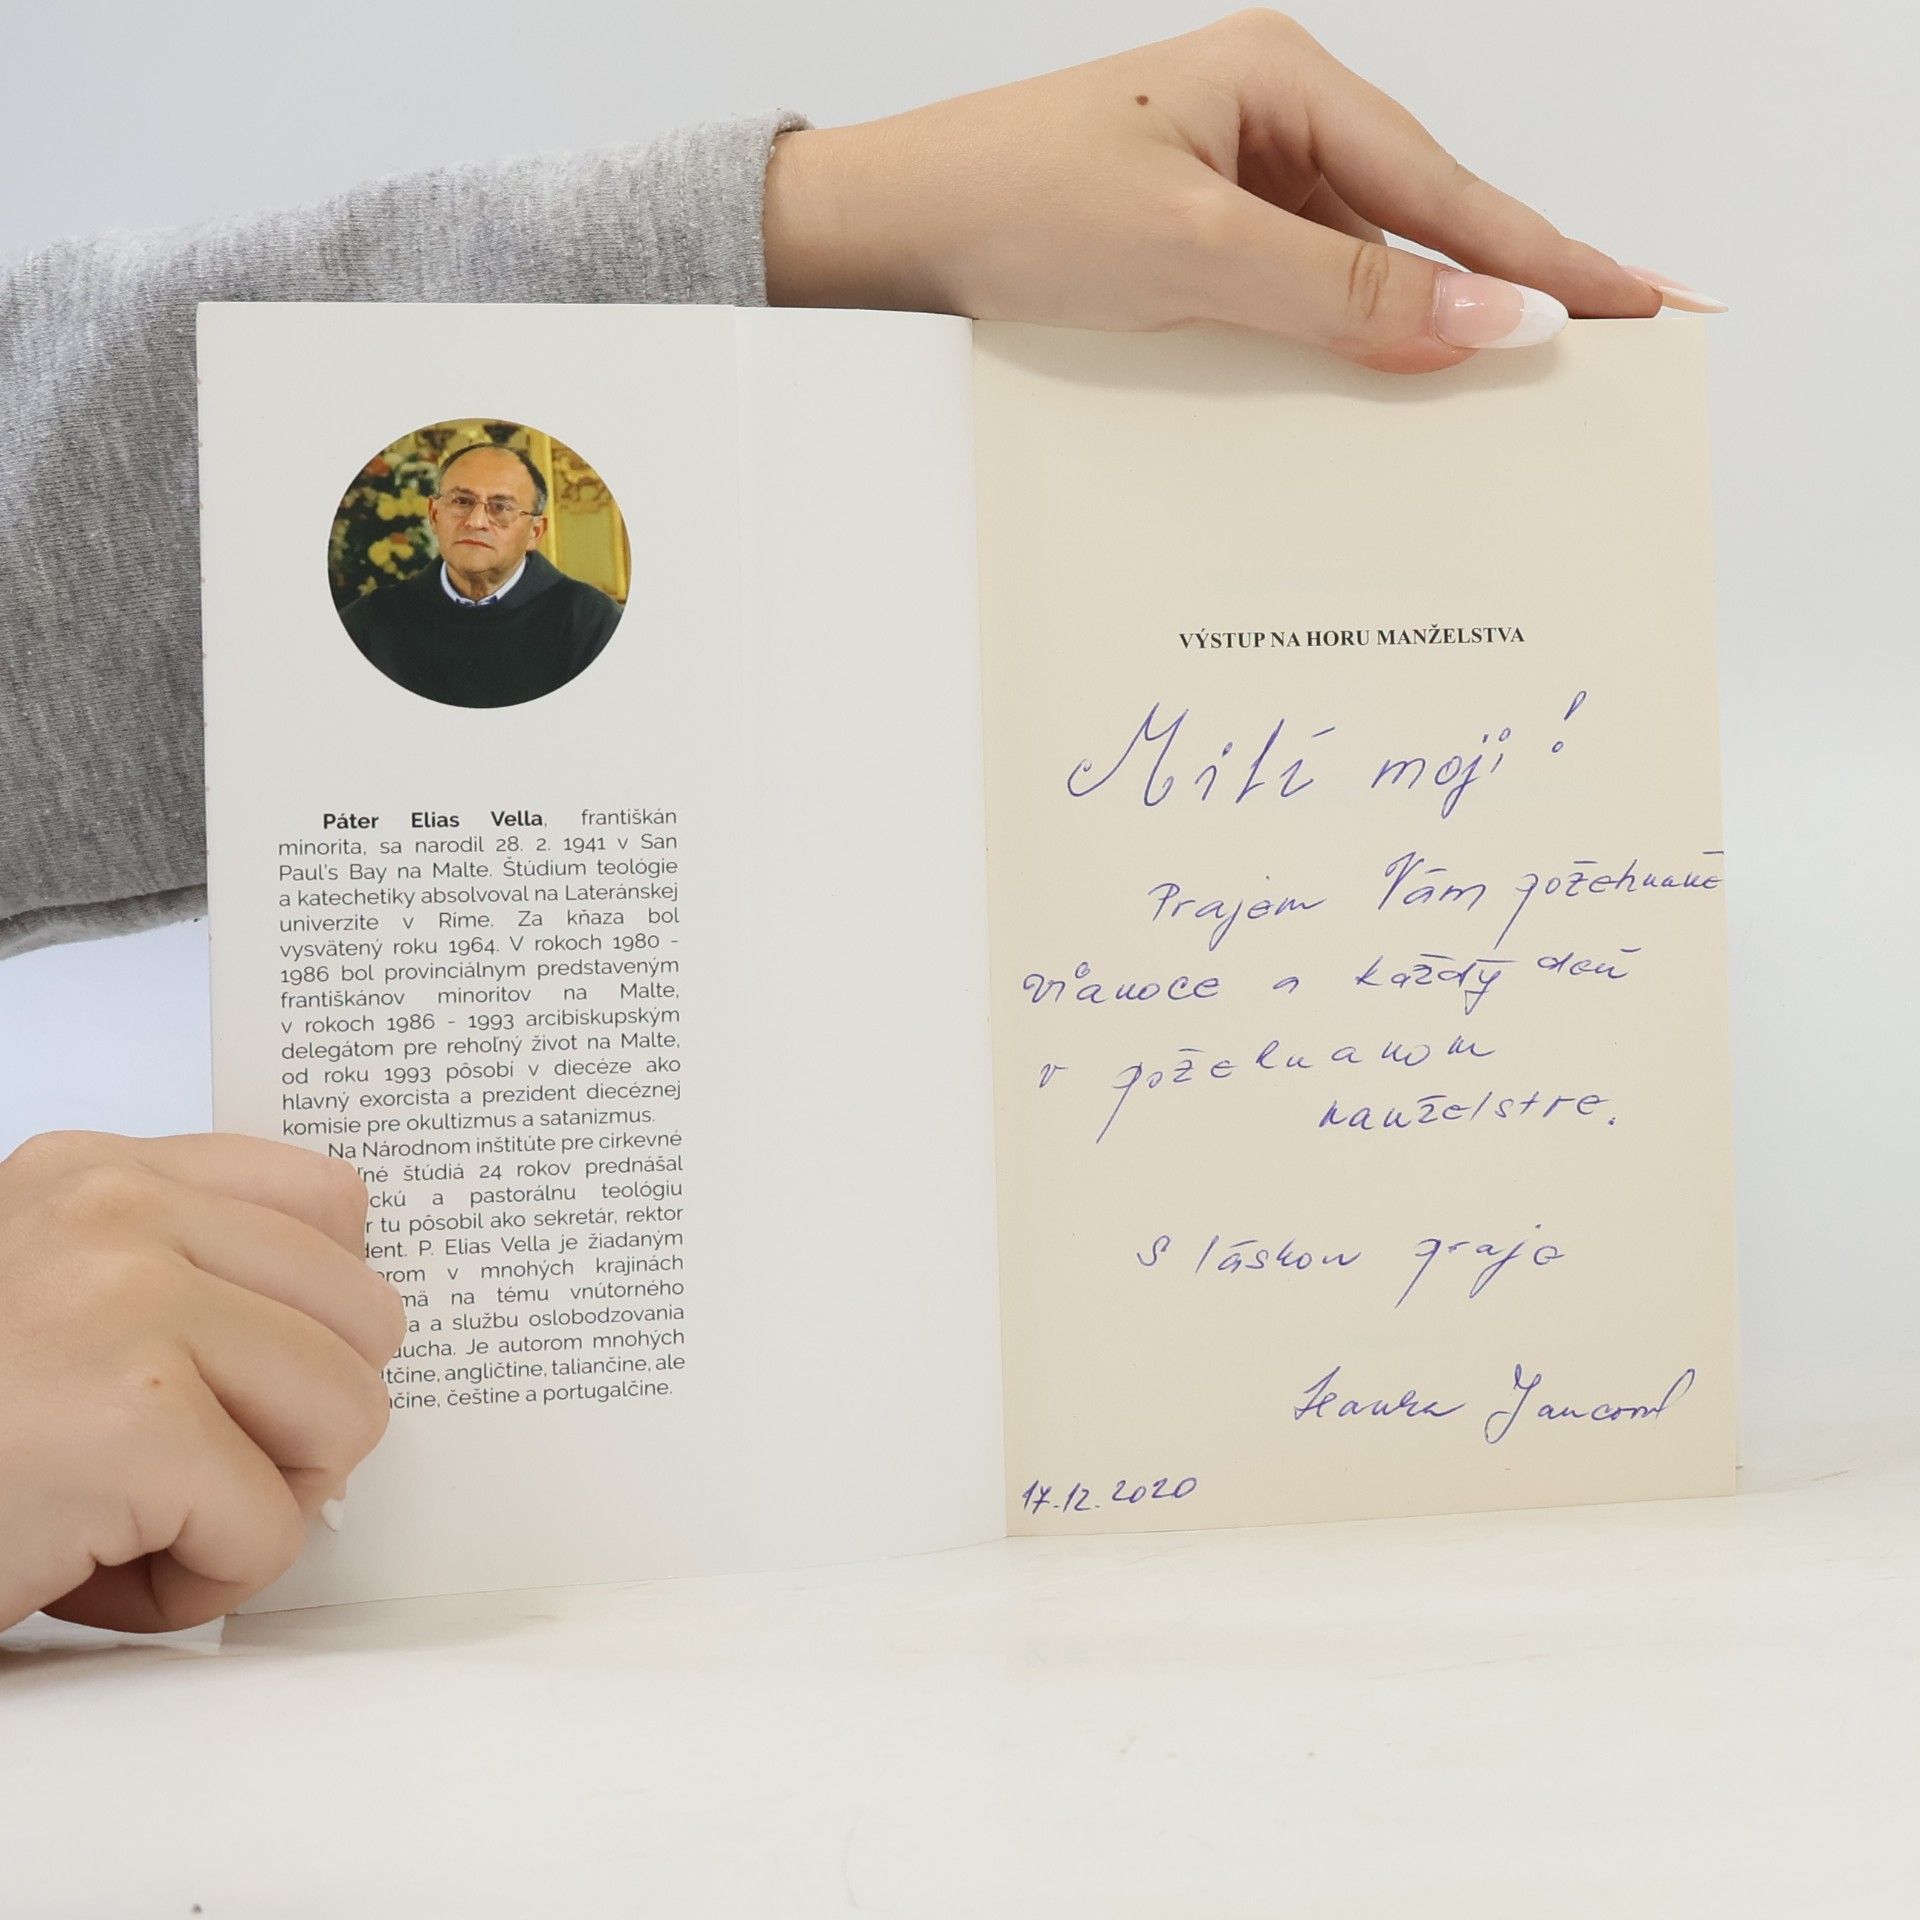 Páter Elias Vella, františkán
minorita, sa narodil 28. 2. 1941 v San
Paul's Bay na Malte. Štúdium teológie
a katechetiky absolvoval na Lateránskej
univerzite v Ríme. Za kňaza bol
vysvätený roku 1964. V rokoch 1980 -
1986 bol provinciálnym predstaveným
františkánov minoritov na Malte,
v rokoch 1986 - 1993 arcibiskupským
delegátom pre rehoľný život na Malte,
od roku 1993 pôsobí v diecéze ako
hlavný exorcista a prezident diecéznej
komisie pre okultizmus a satanizmus.
Na Národnom inštitúte pre cirkevné
štúdiá 24 rokov prednášal
a pastorálnu teológiu
tu pôsobil ako sekretár, rektor
P. Elias Vella je žiadaným
v mnohých krajinách
na tému vnútorného
a službu oslobodzovania
ducha. Je autorom mnohých
angličtine, taliančine, ale
češtine a portugalčine.
VÝSTUP NA HORU MANŽELSTVA
Milí moji!
Prajem Vám požehnané
Vianoce a každý deň
v požehnanom
manželstve.
S láskou praje
Hanka
17.12.2020